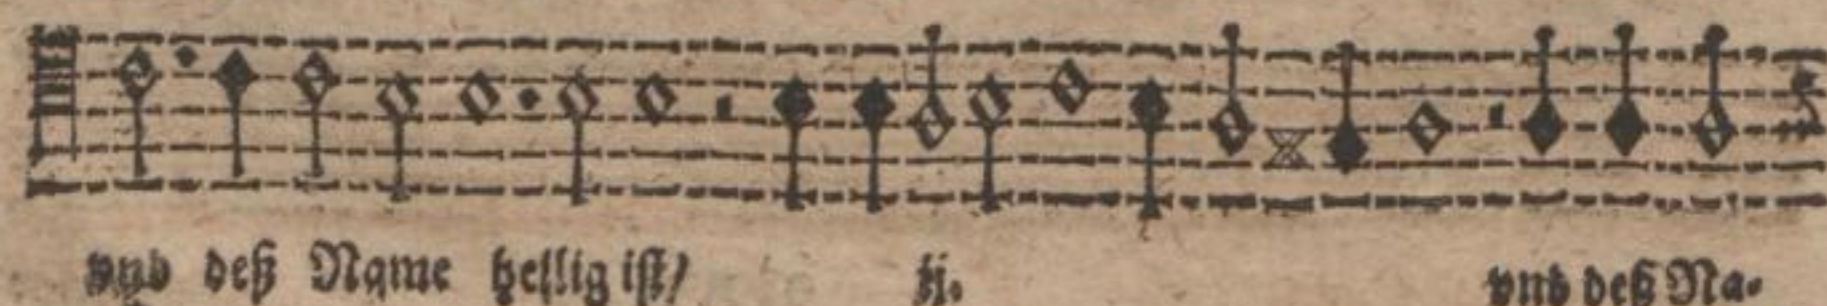 vnd deß Name heilig ist/ ij. vnd deß Na-